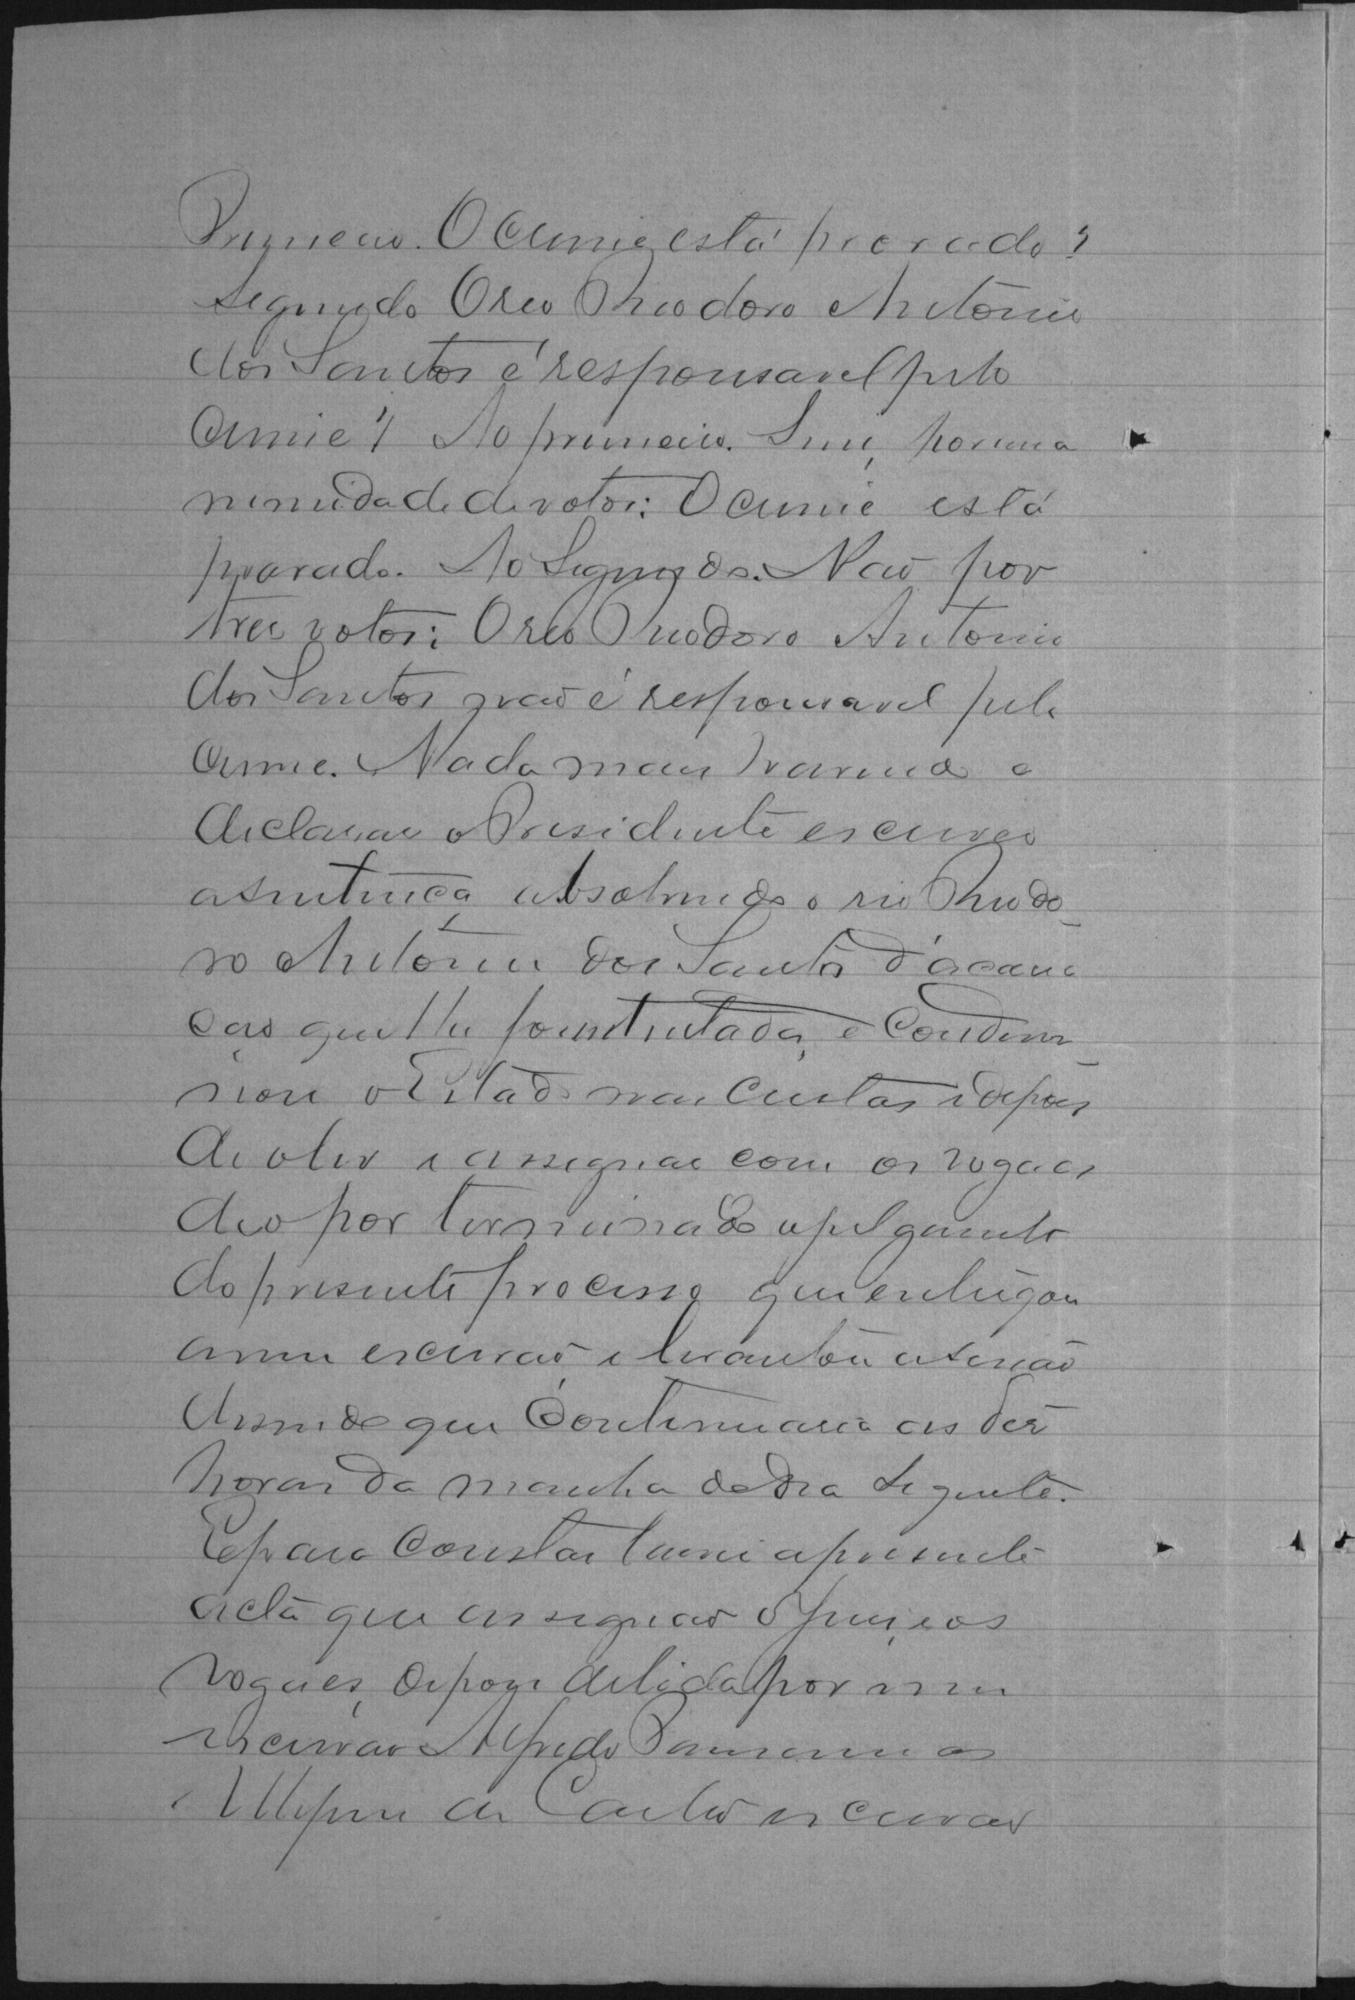 Primeiro. O crime está provado?
Segundo O reo Theodoro Antônio
dos Santos é responsavel pelo
crime? Ao primeiro. Sim, por una
nimidade de votos: O crime está
provado. Ao Segundo. Não por
tres votos: O reo Theodoro Antonio
dos Santos não é responsavel pelo
crime. Nada mais havendo a
declarar o Presidente escreveo
a sentença absolvendo o reo Theodo
ro Antônio dos Santos d'acau
são que lhe foi intentada, e condem
nou o Estado nas custas e depois
de o ler e assignar com os vogaes
deo por terminado o julgamento
do presente processo que entregou
a mim escrivão, e levantou a sessão
disendo que continuaria as dez
horas da manhã do dia seguente.
E para constar lavrei a presente
acta que assignão o juiz e os
vogaes, depois de lida por mim
escrivão Alfredo
de Castro escrivão